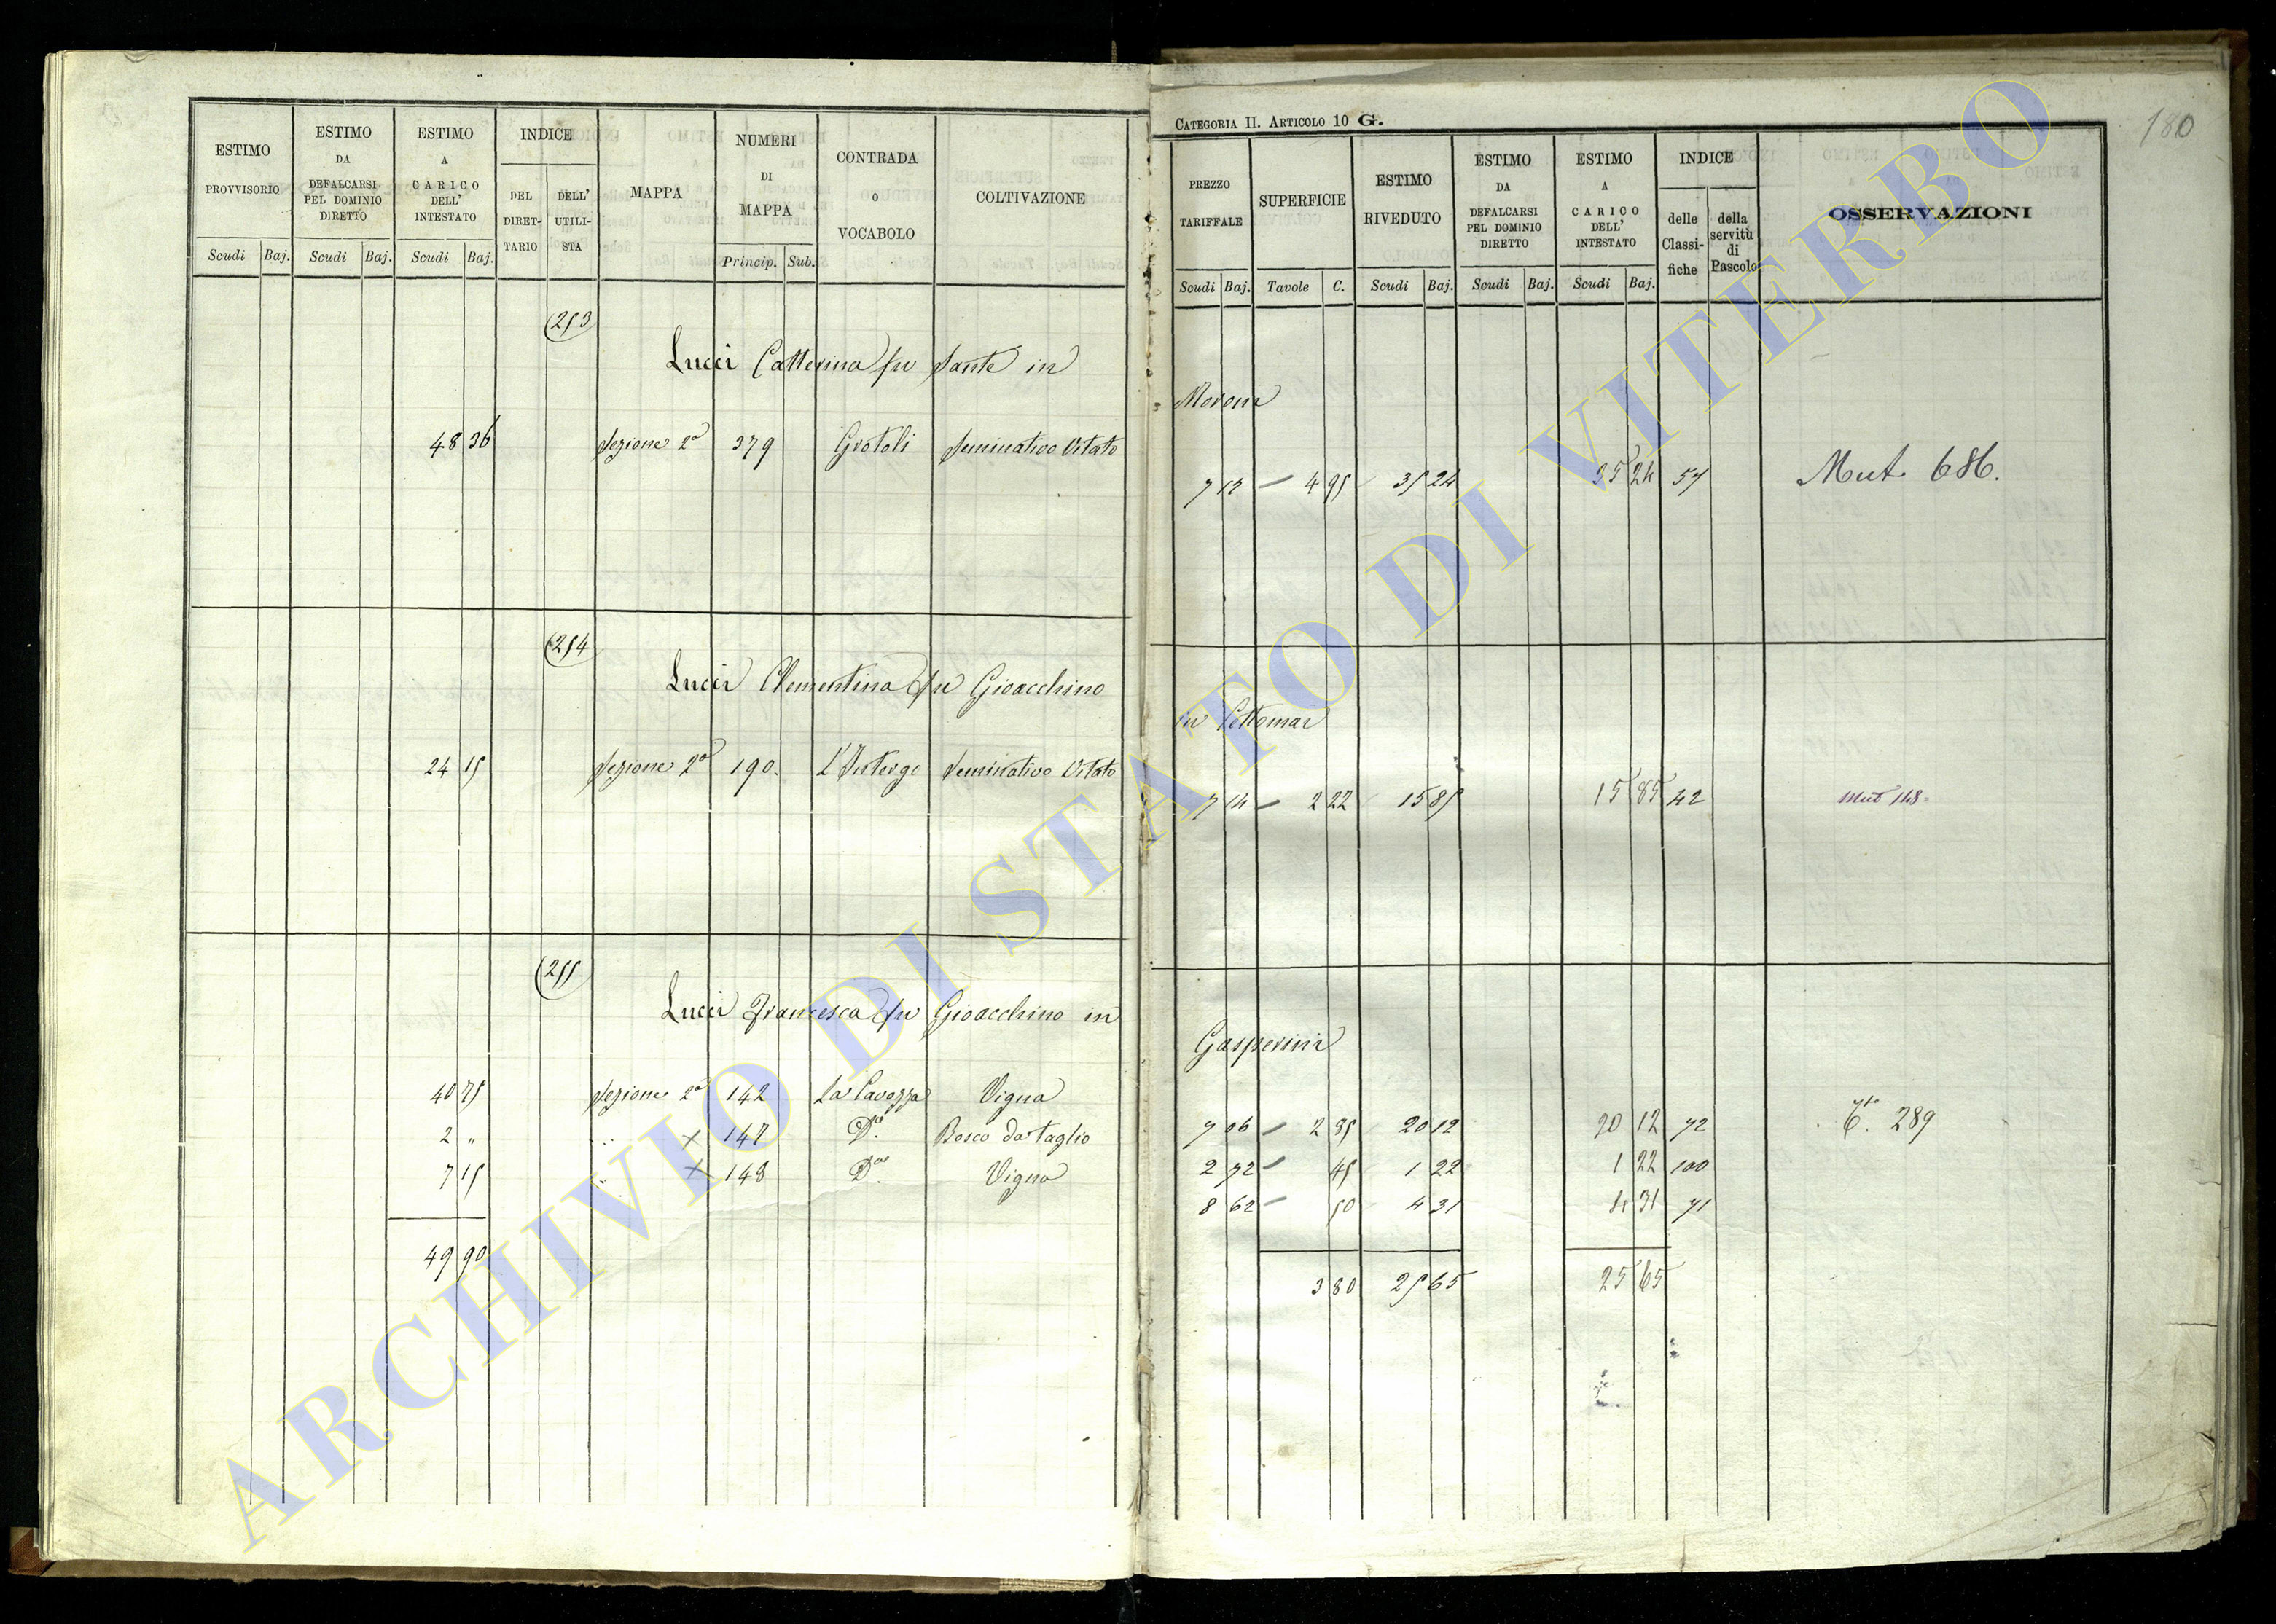 CATEGORIA II. ARTICOLO 10 G.
180
ESTIMO PROVVISORIO Scudi Baj.
ESTIMO DA DEFALCARSI PEL DOMINIO DIRETTO Scudi Baj.
ESTIMO A CARICO DELL' INTESTATO Scudi Baj.
INDICE DEL DIRET-TARIO DELL' UTILI-STA
MAPPA
NUMERI DI MAPPA Princip. Sub.
CONTRADA o VOCABOLO
COLTIVAZIONE
PREZZO TARIFFALE Scudi Baj.
SUPERFICIE Tavole C.
ESTIMO RIVEDUTO Scudi Baj.
ESTIMO DA DEFALCARSI PEL DOMINIO DIRETTO Scudi Baj.
ESTIMO A CARICO DELL' INTESTATO Scudi Baj.
INDICE delle Classi-fiche della servitù di Pascolo
OSSERVAZIONI
253
Lucci Catterina fu Sante in Moroni
48 36 Sezione 2a 379 Grotoli Seminativo Vitato 7 12 4 95 35 24 35 24 57 Mut. 686.
254
Lucci Clementina fu Gioacchino in Pettomar
24 15 Sezione 2a 190. Seminativo Vitato 7 14 2 22 15 85 15 85 42 Mut 148.
255
Lucci Francesca fu Gioacchino in Gasperini
40 75 Sezione 2a 142 La Cavozza Vigna 7 06 2 85 20 12 20 12 72 289
2 " " × 147 Da. Bosco da taglio 2 72 45 1 22 1 22 100
7 15 " × 148 Da. Vigna 8 62 50 4 31 4 31 71
49 90 3 80 25 65 25 65
ARCHIVIO DI STATO DI VITERBO